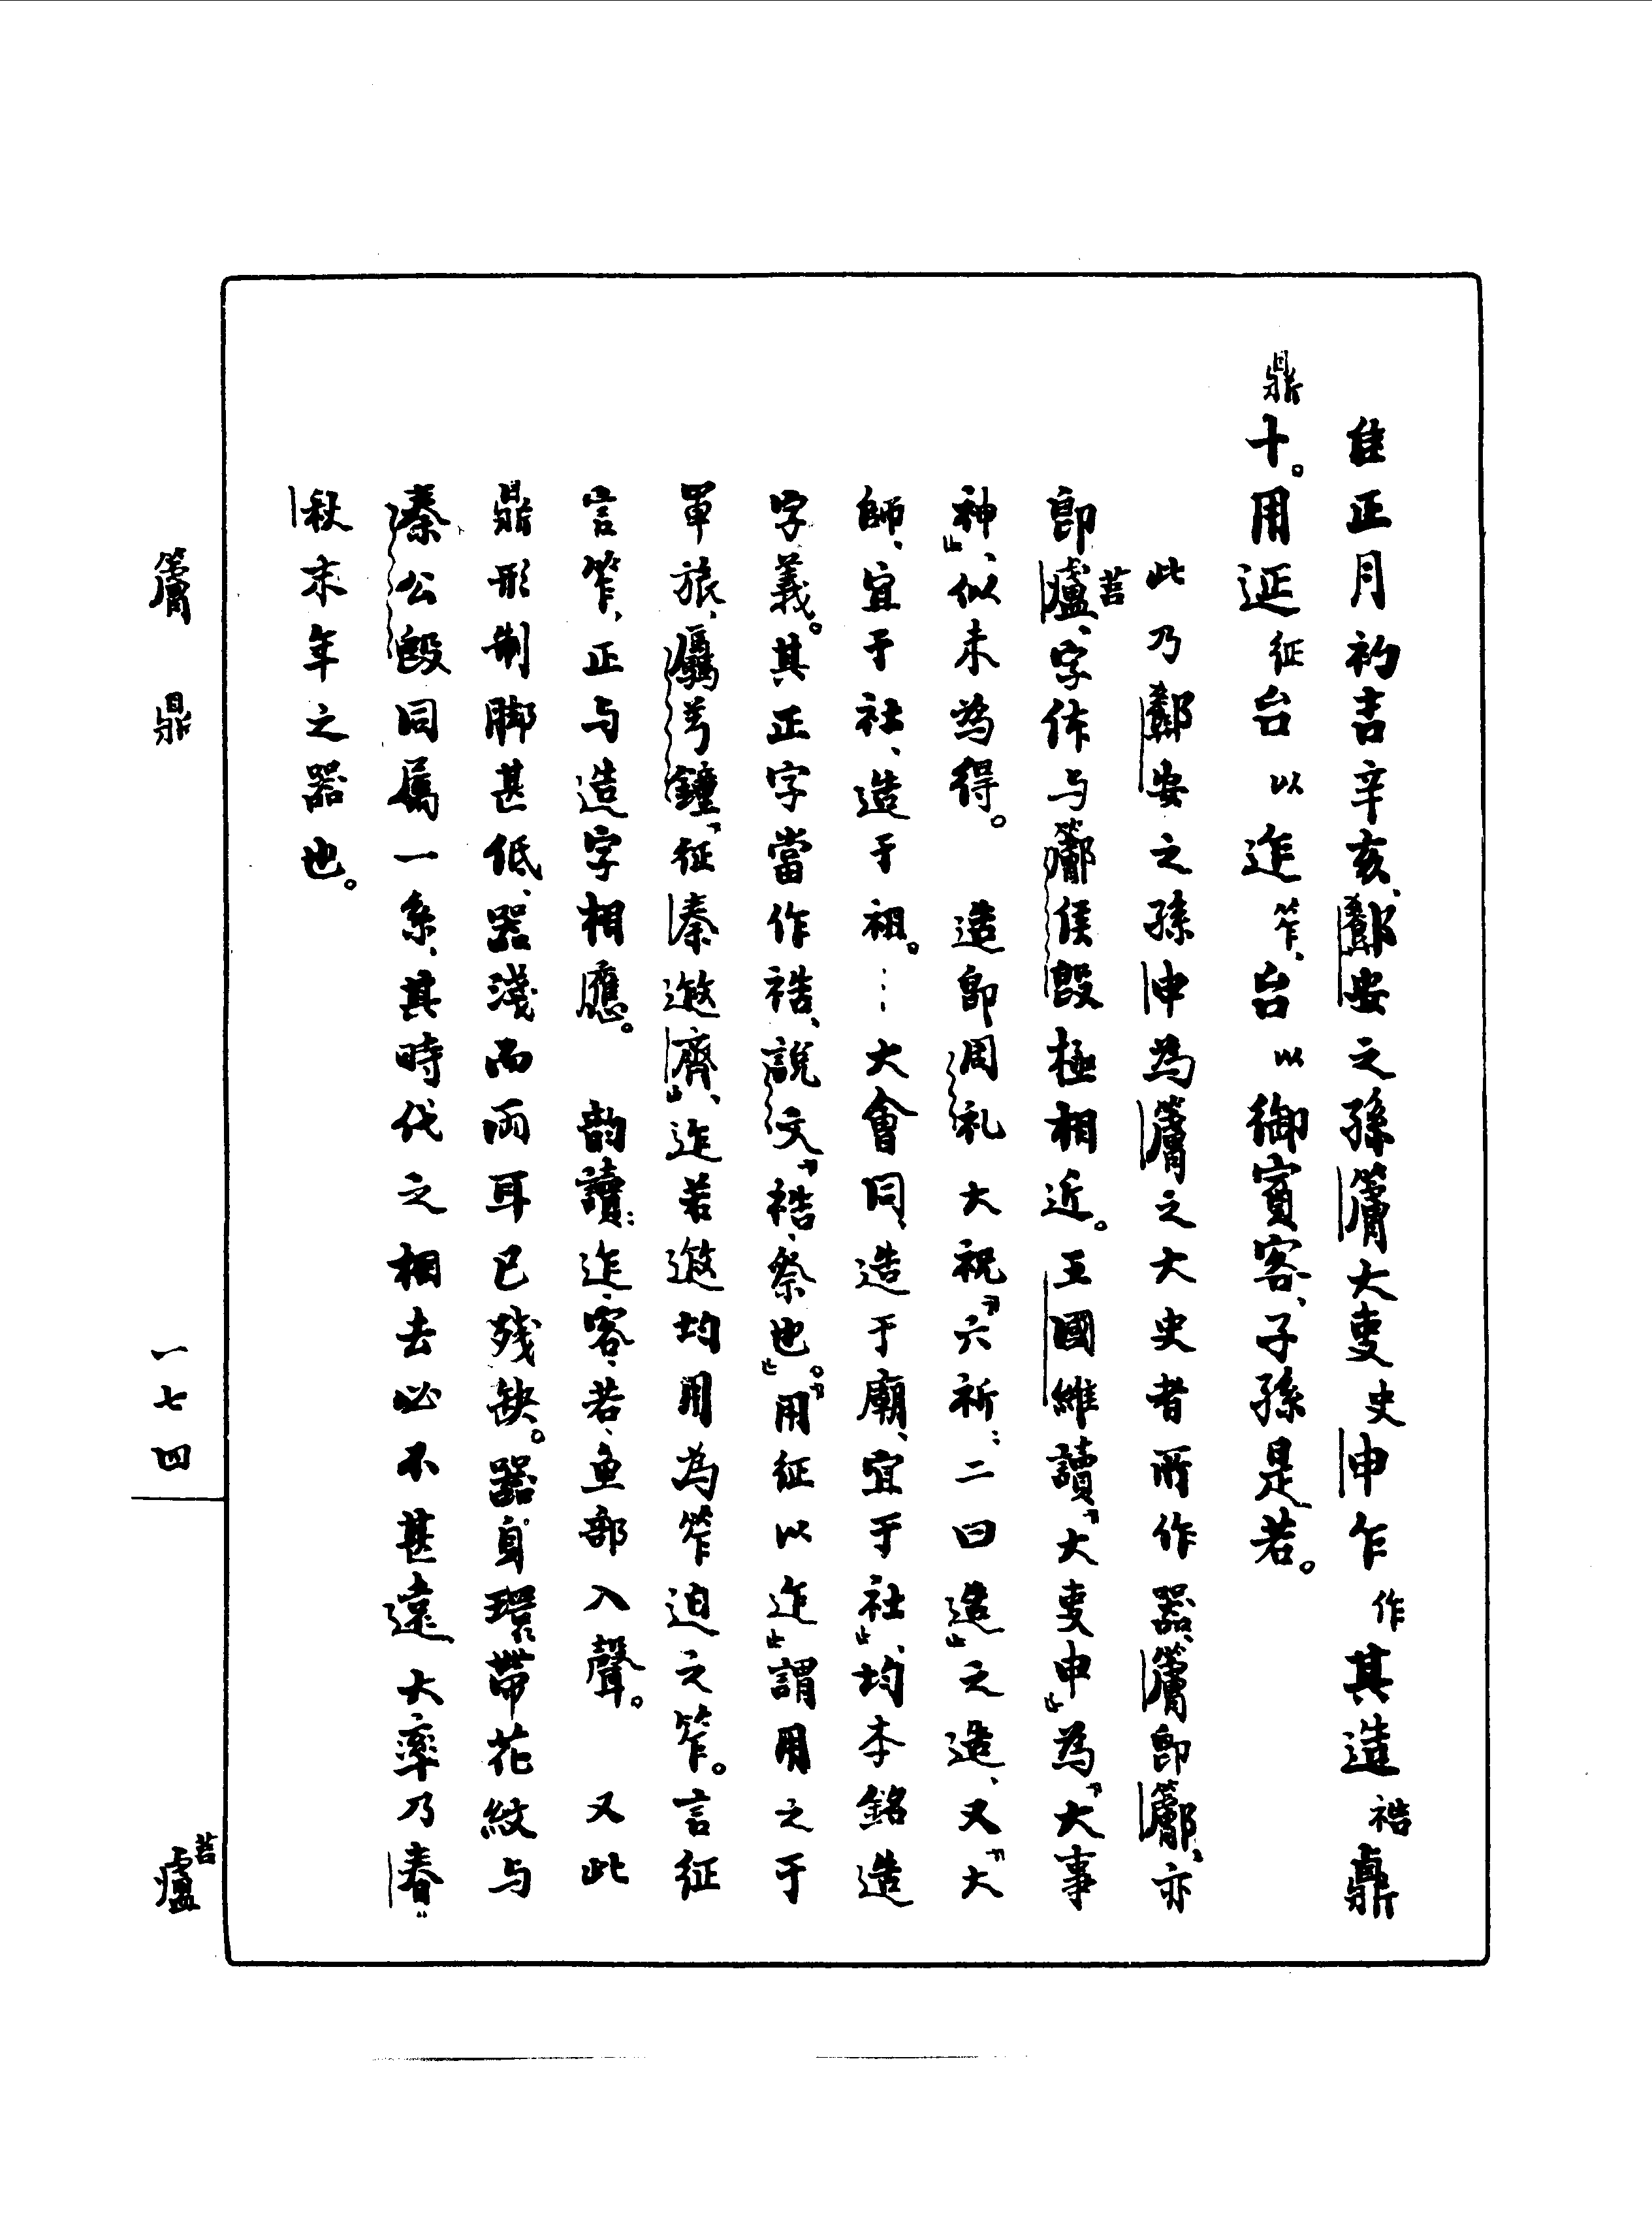 隹正月初吉辛亥、安之孫大叓史申乍作其造祰鼎
鼎十。用延征台以迮笮、台以御賓客、子孫是若。
此乃安之孫申為之大史者所作器、即、亦
即莒、字作与侯𣪘極相近。王國維讀「大叓申」為「大事
神」、似未為得。　造即周礼大祝「六祈：二曰造」之造、又「大
師、宜于社、造于祖。…大會同、造于廟、宜于社」、均本銘造
字義。其正字當作祰、說文「祰、祭也。」「用征以迮」謂用之于
軍旅、羌鐘「征秦齊」、迮若均用為笮迫之笮。言征
言笮、正与造字相應。　韵讀：迮、客、若、魚部入聲。　又此
鼎形制脚甚低、器淺而兩耳已殘缺。器身環帶花紋与
秦公𣪘同屬一系、其時代之相去必不甚遠、大率乃春
秋末年之器也。
鼎
一七四
莒